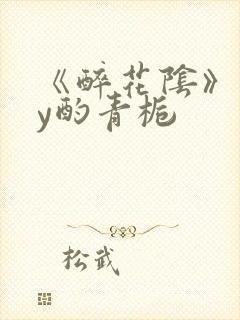 《醉花陰》
y酌青栀
松武